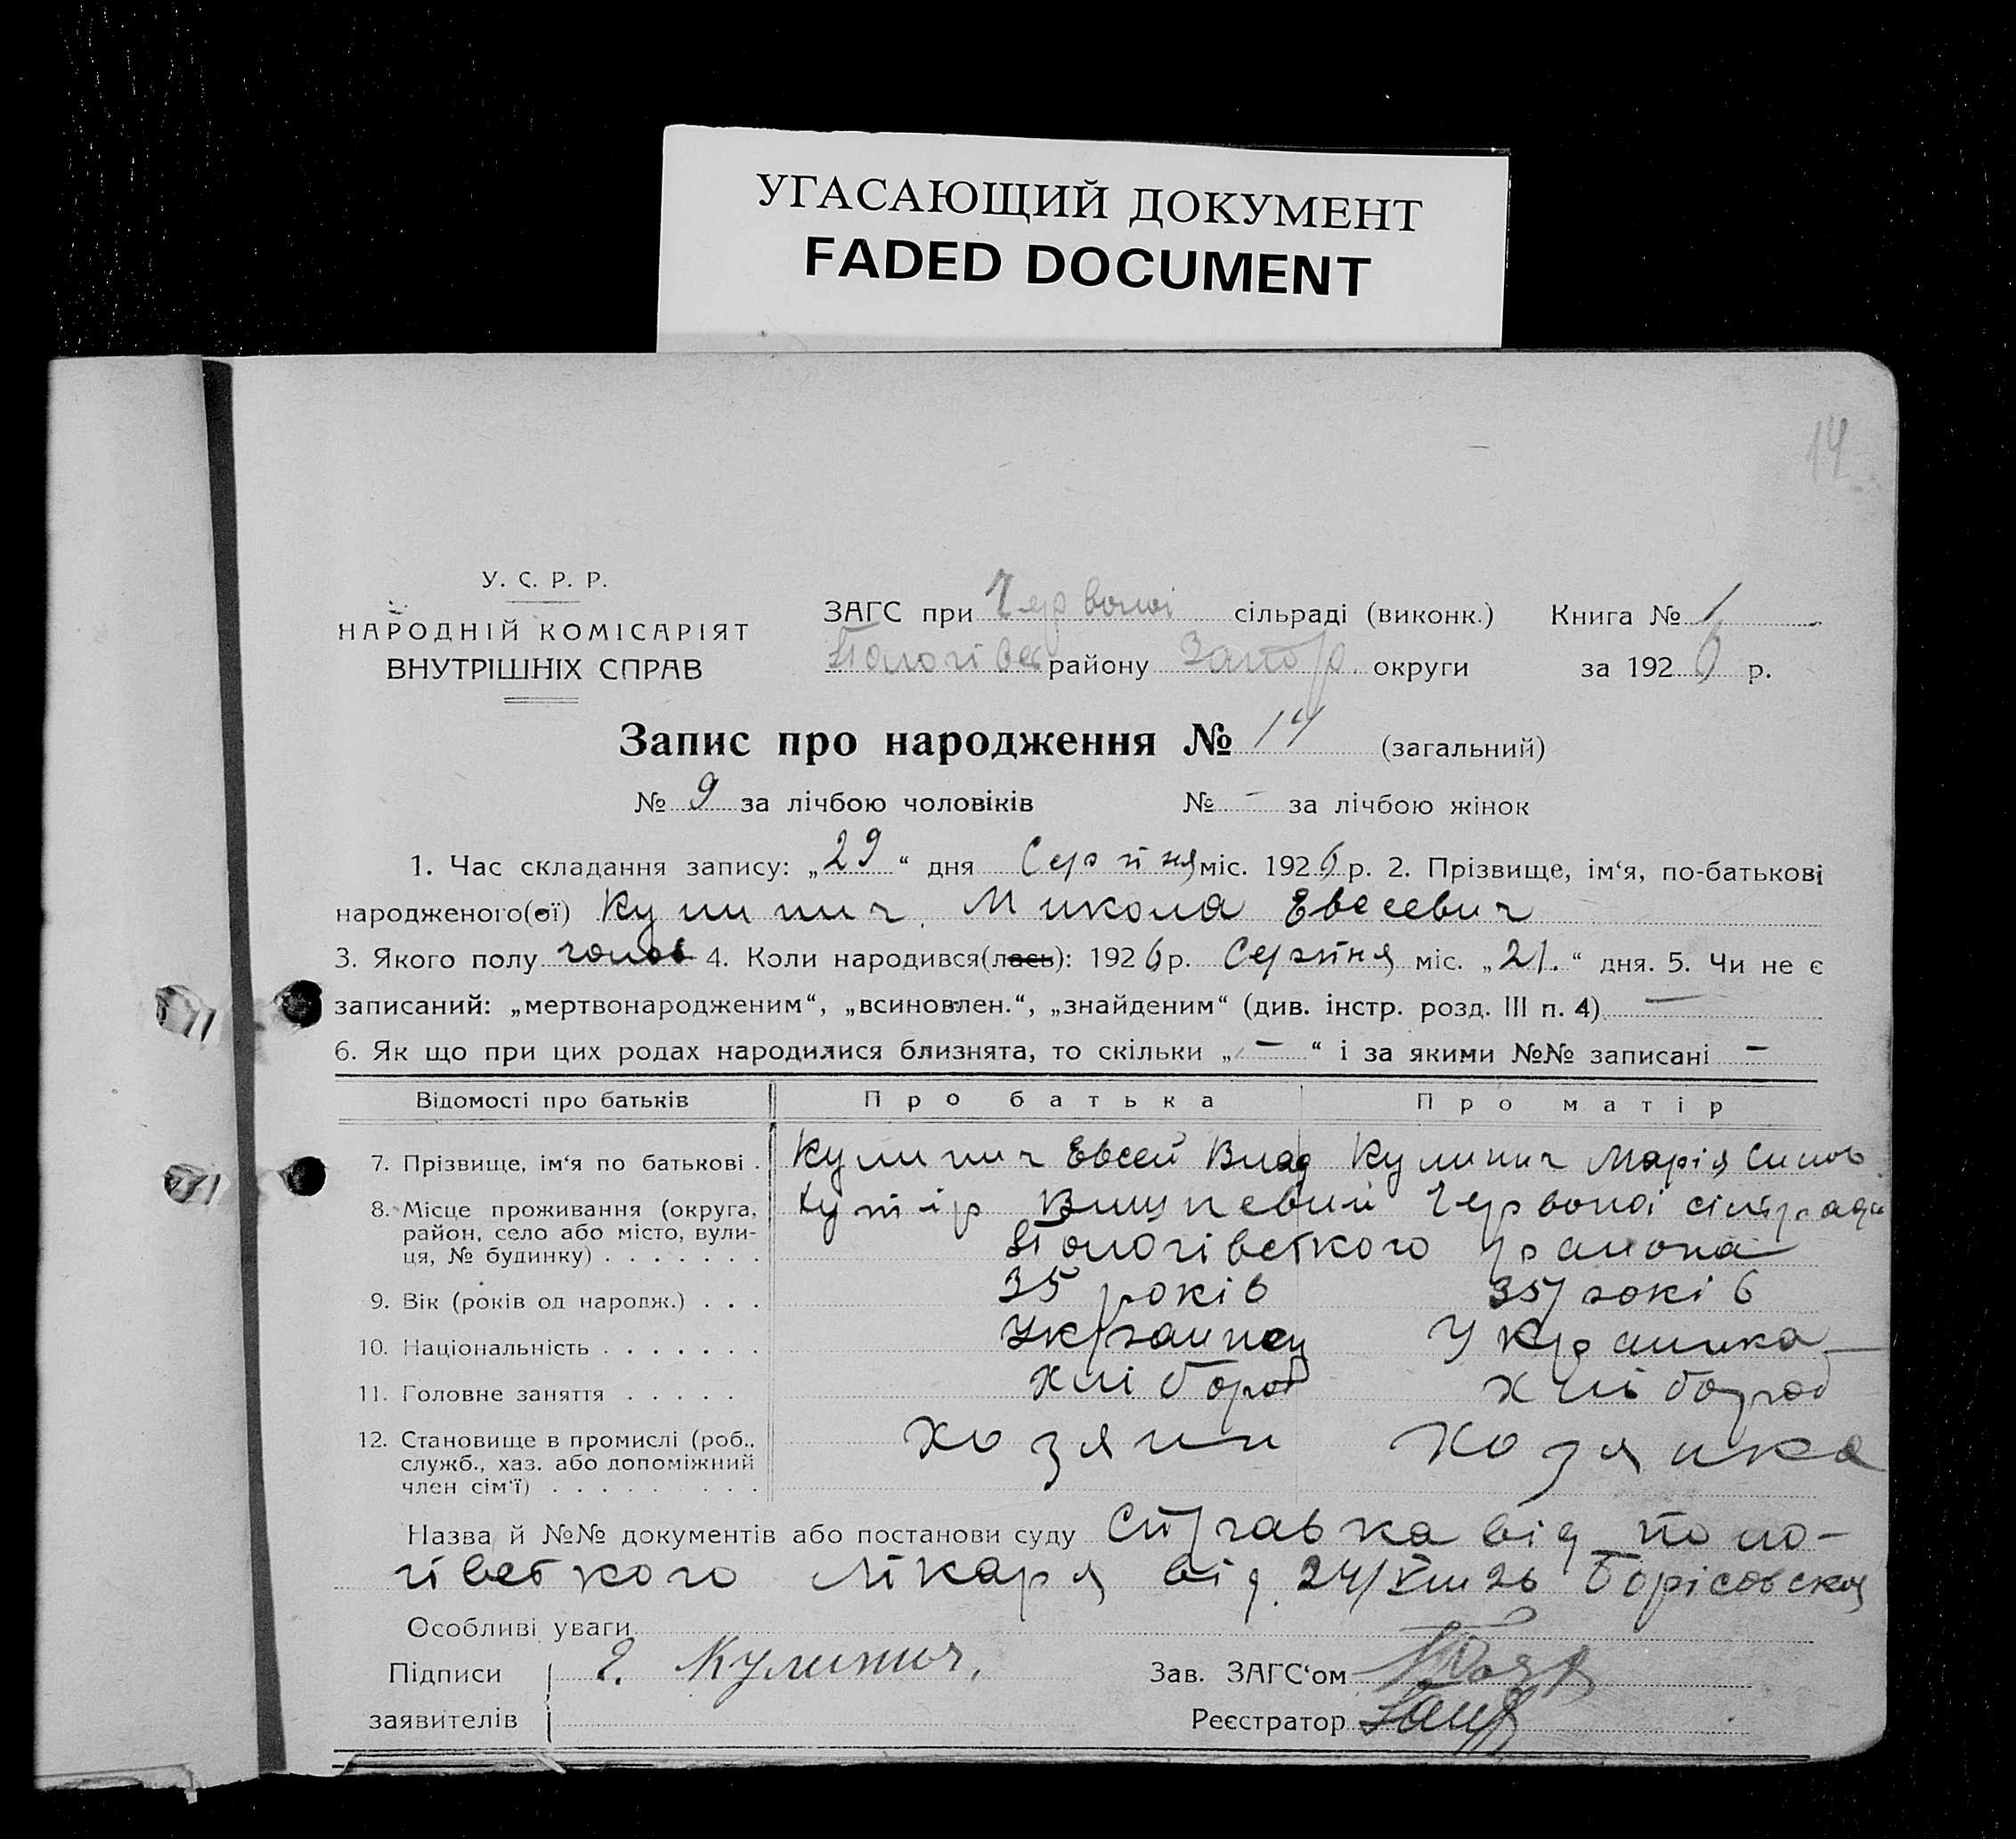 УГАСАЮЩИЙ ДОКУМЕНТ
FADED DOCUMENT
14
У. С. Р. Р.
НАРОДНІЙ КОМІСАРІЯТ
ВНУТРІШНІХ СПРАВ
ЗАГС при Червоної сільраді (виконк.) Книга № 1
Пологівск району Запор. округи за 1926 р.
Запис про народження № 14 (загальний)
№ 9 за лічбою чоловіків № - за лічбою жінок
1. Час складання запису: „29“ дня Серпня міс. 1926 р. 2. Прізвище, ім‘я, по-батькові
народженого(ої) Кулинич Микола Евсеевич
3. Якого полу чолов 4. Коли народився(лась): 1926 р. Серпня міс. „21.“ дня. 5. Чи не є
записаний: „мертвонародженим“, „всиновлен.“, „знайденим“ (див. інстр. розд. III п. 4) —
6. Як що при цих родах народилися близнята, то скільки „—“ і за якими №№ записані —
Відомості про батьків Про батька Про матір
7. Прізвище, ім‘я по батькові . Кулинич Евсей Влад Кулинич Марія Симов
8. Місце проживання (округа, район, село або місто, вулиця, № будинку) . . . . . . . Хутір Вишневий Червоної сільради
Пологівского района
9. Вік (років од народж.) . . . 35 років 35 років
10. Національність . . . . . . . Украинец Украинка
11. Головне заняття . . . . . хлібороб хлібороб
12. Становище в промислі (роб., служб., хаз. або допоміжний член сім‘ї) . . . . . . . . . Хозяин Хозяика
Назва й №№ документів або постанови суду Справка від поло-
гівского лікаря від 24/VIII 26 Борісовская
Особливі уваги
Підписи Е. Кулинич. Зав. ЗАГС‘ом
заявителів Реєстратор